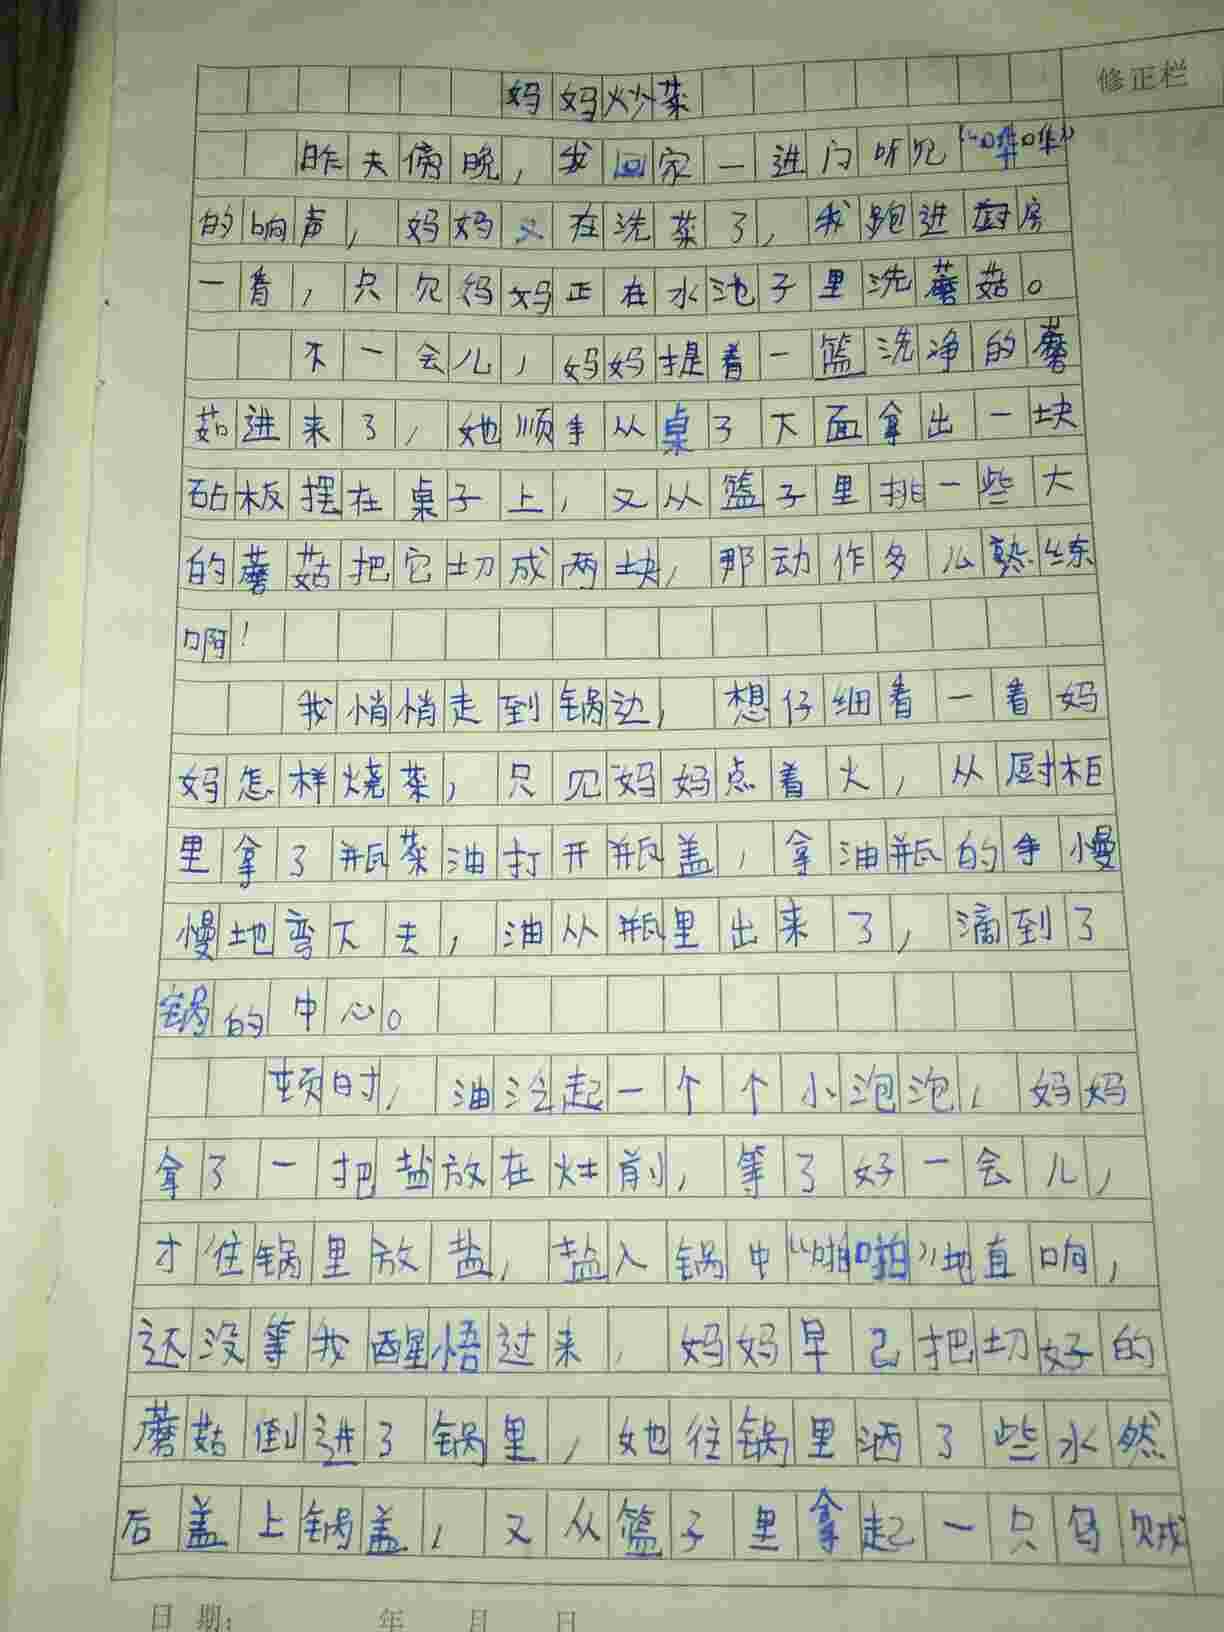 修正栏
妈妈炒菜
昨天傍晚，我回家一进门听见“哗哗”
的响声，妈妈又在洗菜了，我跑进厨房
一看，只见妈妈正在水池子里洗蘑菇。
不一会儿，妈妈提着一篮洗净的蘑
菇进来了，她顺手从桌子下面拿出一块
砧板摆在桌子上，又从篮子里挑一些大
的蘑菇把它切成两块，那动作多么熟练
啊！
我悄悄走到锅边，想仔细看一看妈
妈怎样烧菜，只见妈妈点着火，从厨柜
里拿了瓶菜油打开瓶盖，拿油瓶的手慢
慢地弯下去，油从瓶里出来了，滴到了
锅的中心。
顿时，油泛起一个个小泡泡，妈妈
拿了一把盐放在灶前，等了好一会儿，
才往锅里放盐，盐入锅中“啪啪”地直响，
还没等我醒悟过来，妈妈早已把切好的
蘑菇倒进了锅里，她往锅里洒了些水然
后盖上锅盖，又从篮子里拿起一只乌贼
日期： 年 月 日